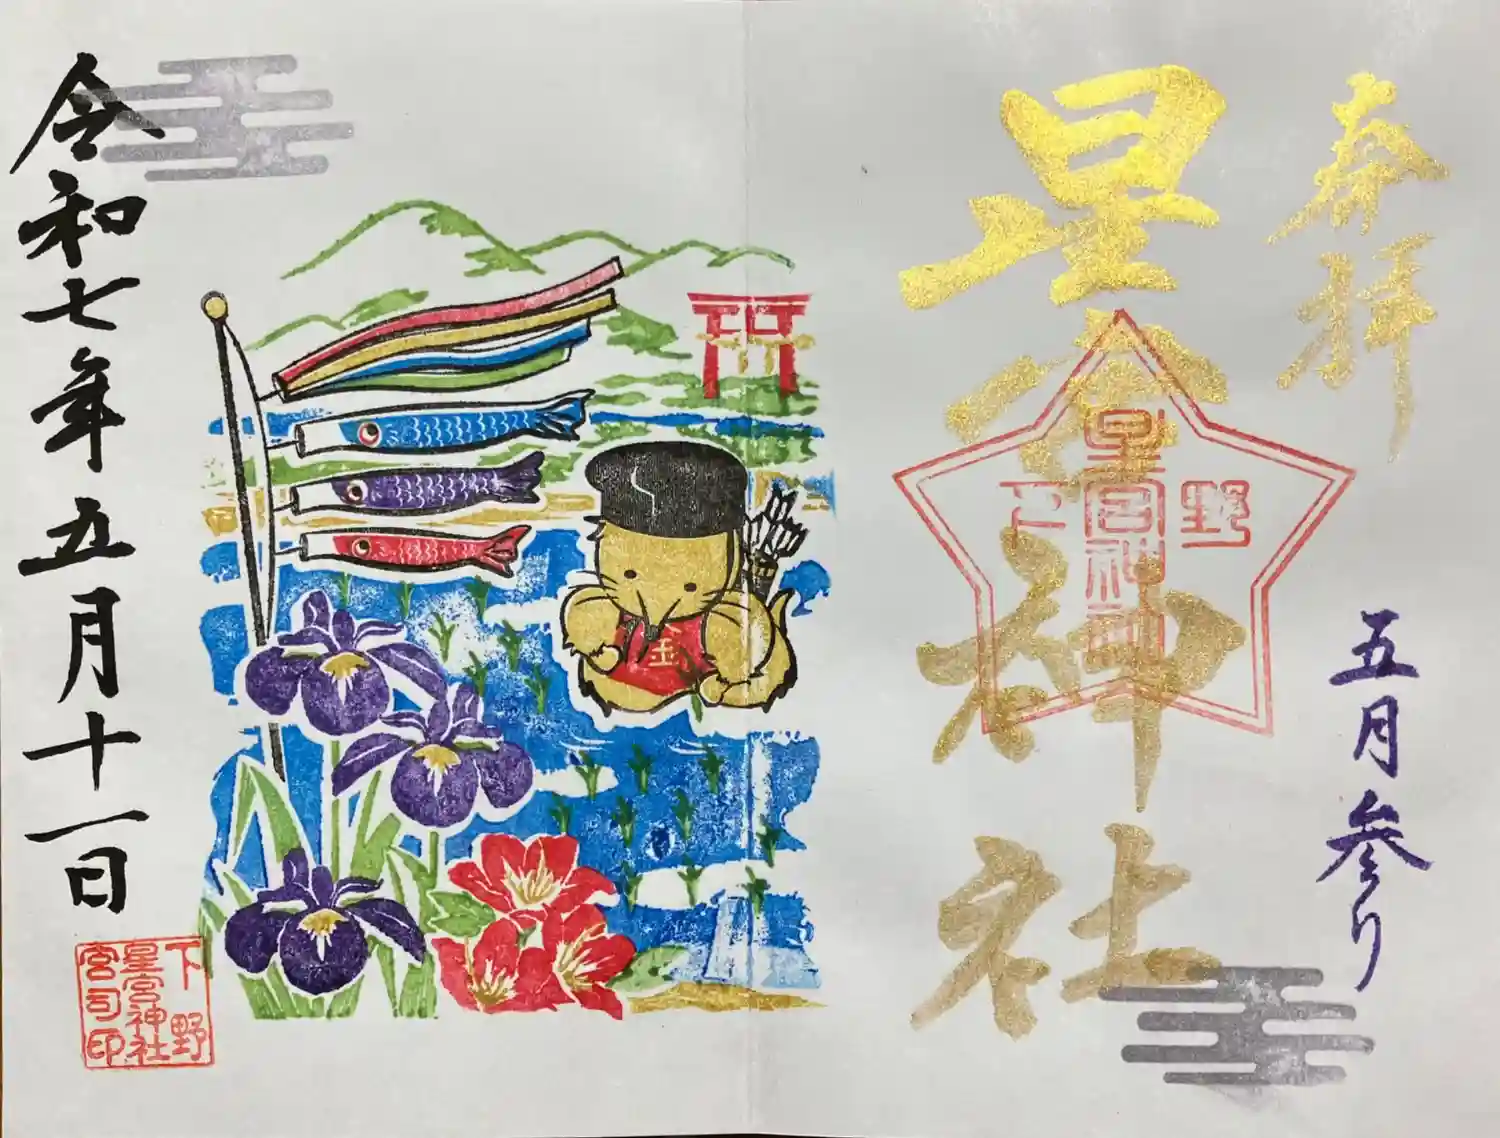 奉拝
五月参り
星宮神社
下野
星宮神社
金
令和七年五月十一日
下野
星宮神社
宮司印